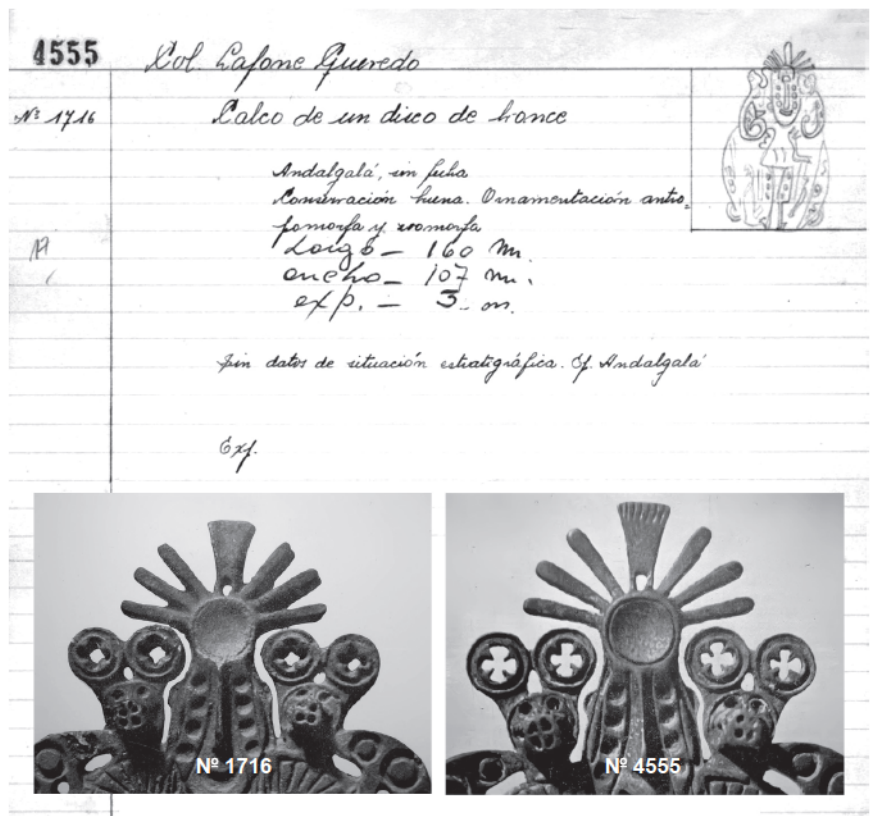 4555 Col. Lafone Quevedo
Nº 1716 Calco de un disco de bronce
Andalgalá, sin fecha
Conservación buena. Ornamentación antro-
pomorfa y zoomorfa
Largo – 160 m.
ancho – 107 m.
exp. – 3 m.
Sin datos de situación estratigráfica. Cf. Andalgalá
Exf.
Nº 1716
Nº 4555